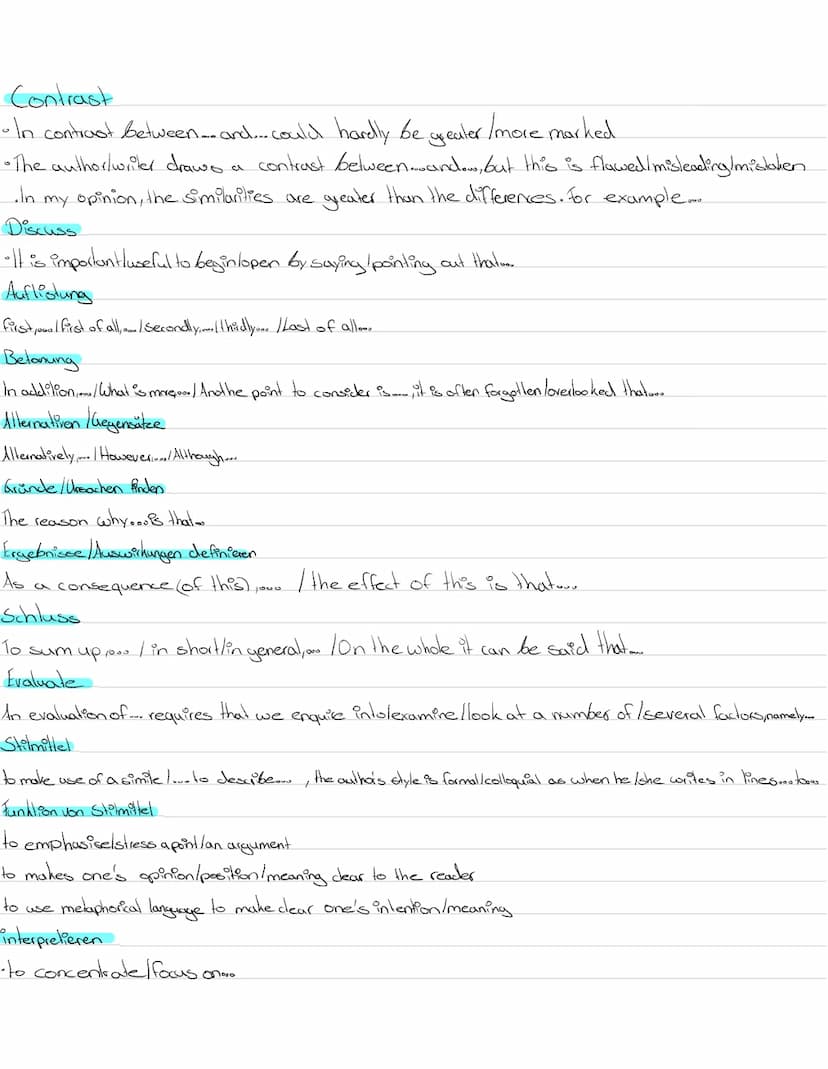 Contrast
• In contrast between... and... could hardly be greater/more marked
• The author/writer draws a contrast between...and..., but this is flawed/misleading/mistaken
. In my opinion, the similarities are greater than the differences. For example...
Discuss
• It is important/useful to begin/open by saying/pointing out that...
Auflistung
First,.../first of all,.../secondly,.../thirdly... /Last of all...
Betonung
In addition,.../What is more,.../ Anothe point to consider is..., it is often forgotten/overlooked that...
Alternativen /Gegensätze
Alternatively,.../However,.../Although...
Gründe/Ursachen finden
The reason why...is that...
Ergebnisse/Auswirkungen definieren
As a consequence (of this),... / the effect of this is that...
Schluss
To sum up,... / in short/in general,... /On the whole it can be said that...
Evaluate
An evaluation of... requires that we enquire into/examine/look at a number of /several factors,namely...
Stilmittel
to make use of a simile/...to describe... , the author's style is formal/colloquial as when he/she writes in lines...to...
Funktion von Stilmittel
to emphasise/stress a point/an argument
to makes one's opinion/position/meaning clear to the reader
to use metaphorical language to make clear one's intention/meaning
interpretieren
• to concentrate/focus on...